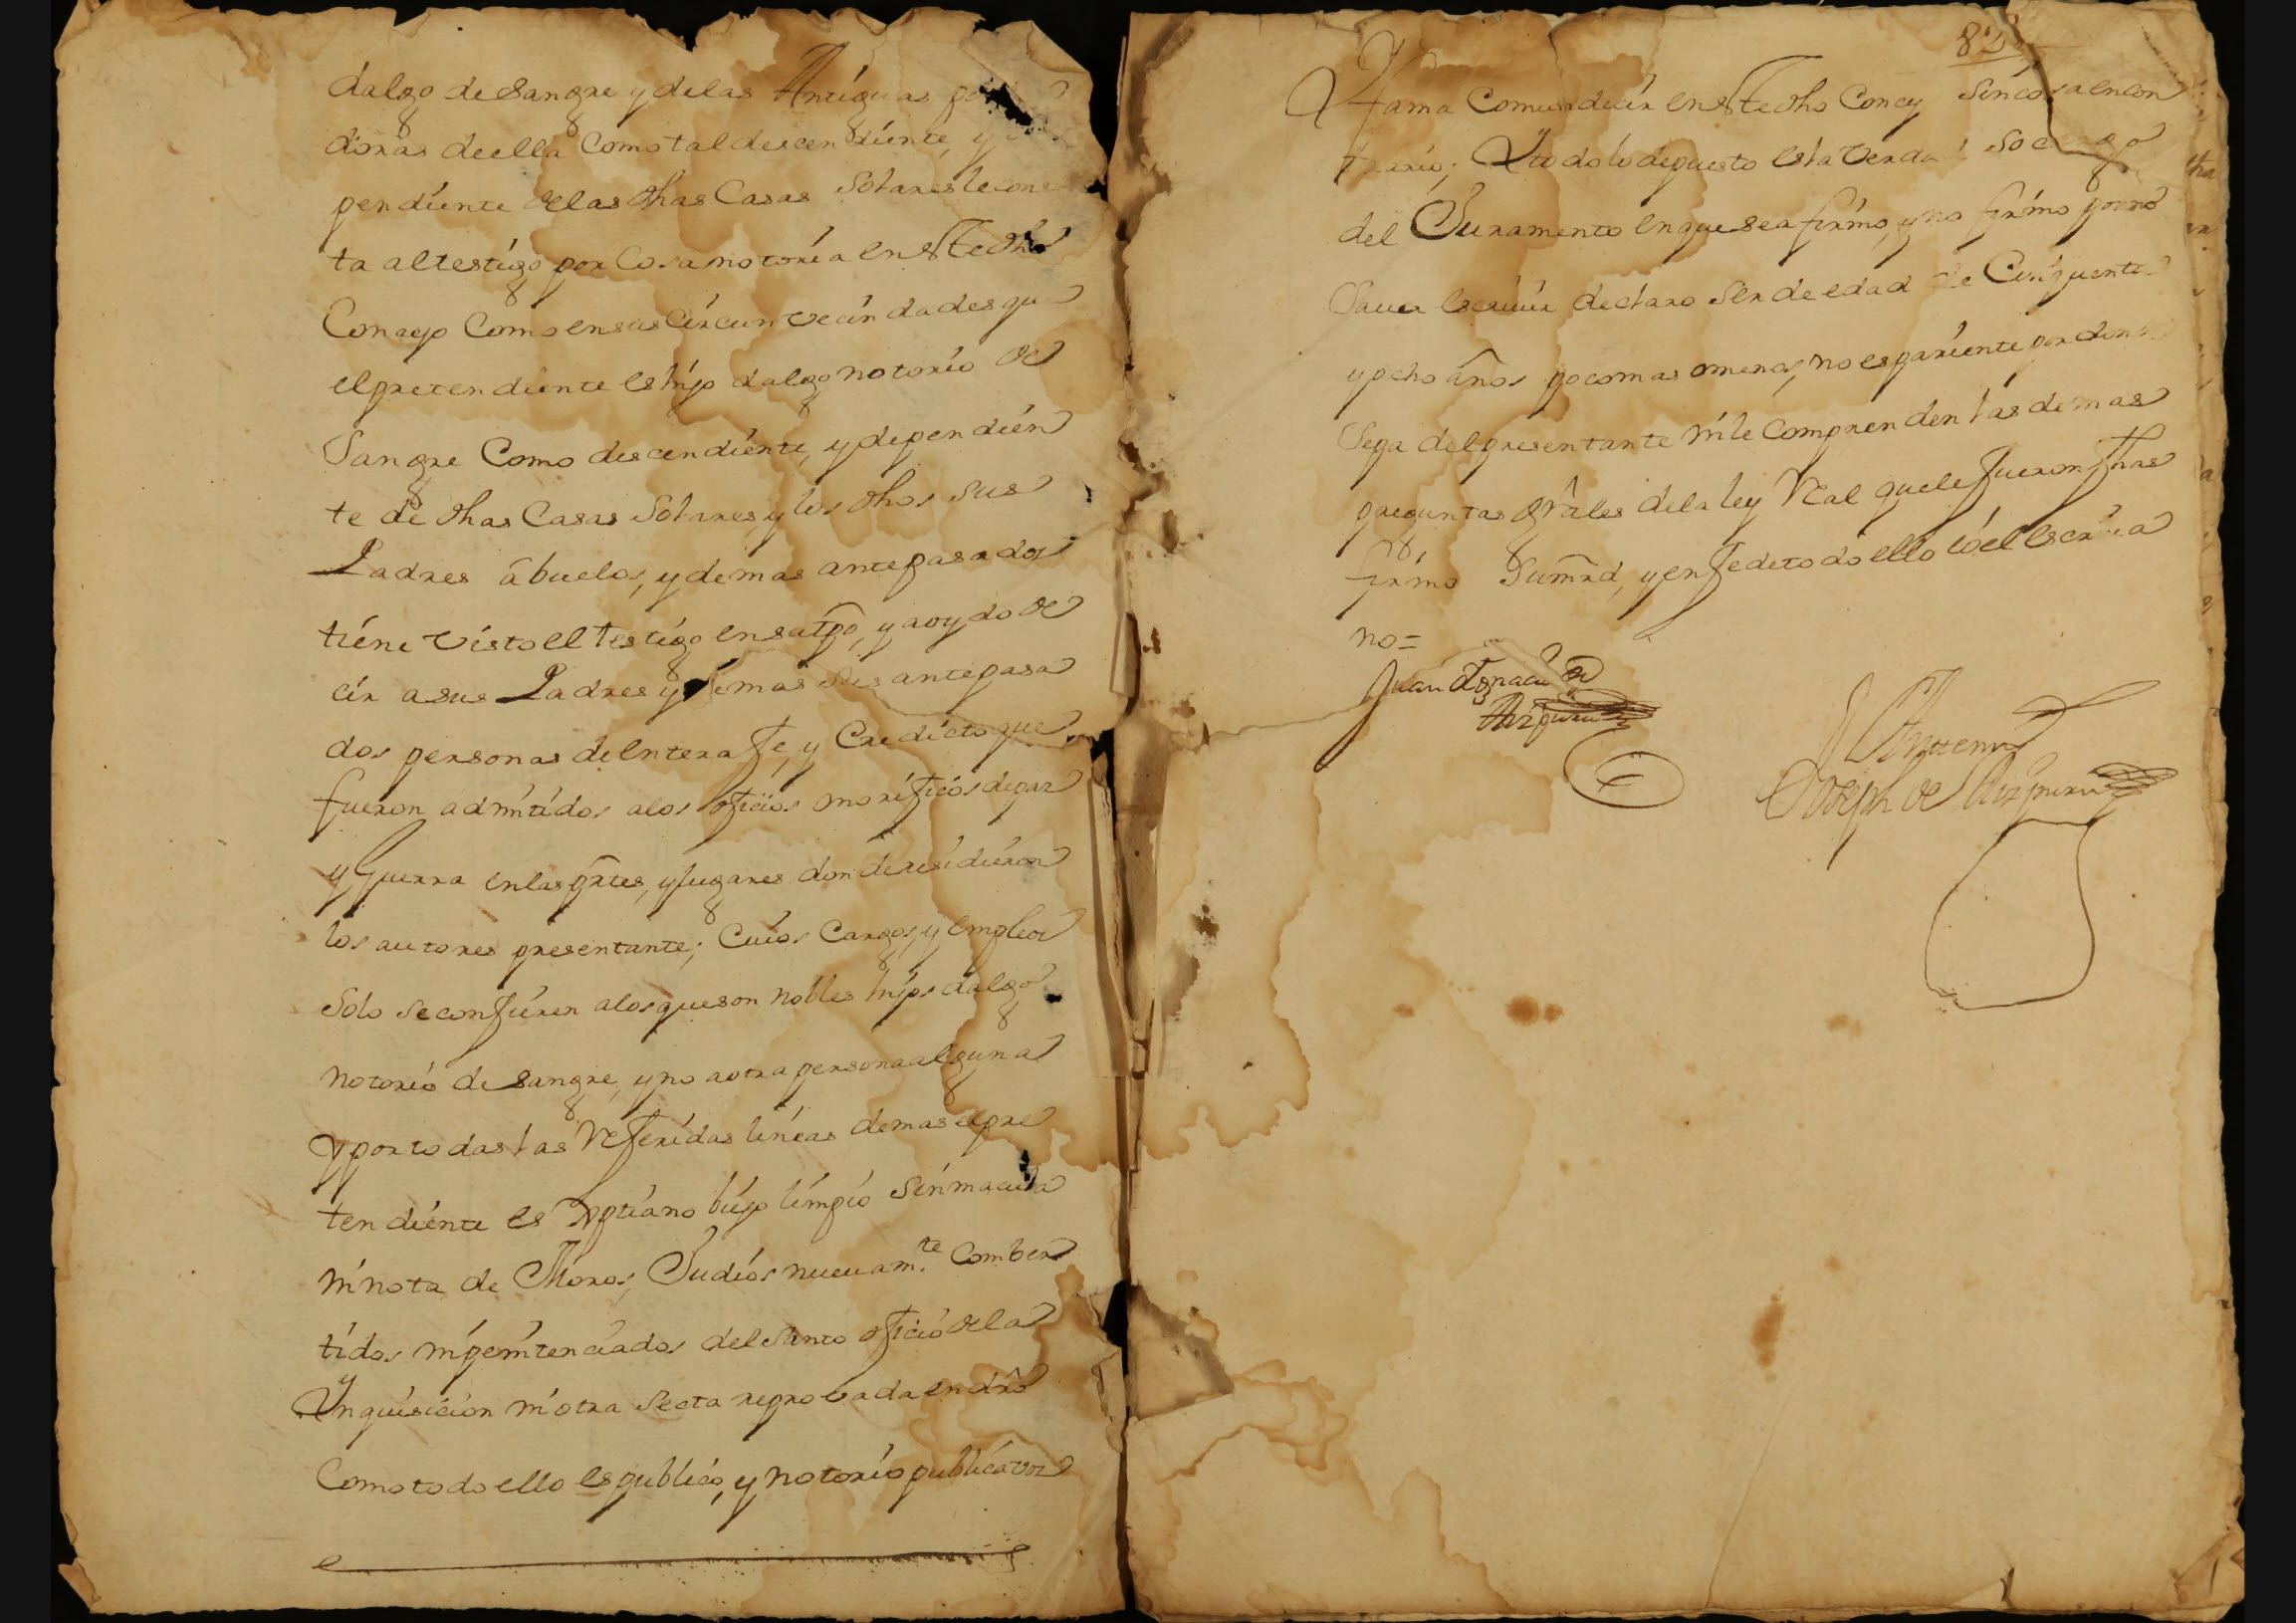 dalgo de Sangre y de las Antiguas
doras de ella como tal descendiente, y
pendiente de las dhas Casas Solares le cons
ta al testigo por Cosa notoria en este dho
Conzejo Como en sus Circunvecindades qu
el pretendiente es hijo dalgo notorio de
Sangre Como descendiente, y dependien
te de dhas Casas Solares, y los dhos sus
Padres abuelos, y demas antepasados
tiene visto el testigo en su tpô, y a oydo de
cir a sus Padres y demas sus antepasa
dos personas de entera fe, y Credicto que
fueron admitidos a los oficios onorificos de paz
y Guerra en las ptes, y lugares donde residieron
los autores presentante; Cuios Cargos, y empleos
Solo se confieren a los que son nobles hijos dalgo
notorio de Sangre, y no a otra persona alguna
Y por todas las Referidas lineas demas el pre
tendiente es Xptiano biejo limpio Sin macula
ni nota de Moros, Judios nuevam.te Comber
tidos ni penitenciados del Santo oficio de la
Ynquisicion ni otra Secta reprovada en drô
Como todo ello es publico, y notorio publica voz
82
Y fama Comun decir en este dho Sin cosa en con
trario; Y todo lo depuesto es la verdad So cargo
del Juramento en que se afirmo, y no firmo por no
Saver escriuir declaro Ser de edad de Cinquenta
y ocho años poco mas o menos, no es pariente por donde
Sepa del presentante ni le Comprenden las demas
preguntas grâles de la ley Real que le fueron fhas
firmo Su mrd, y en fe de todo ello io el Escriua
no =
Juan Ignacio de
Aizpuru
Antemi
Joseph de Aizpuru